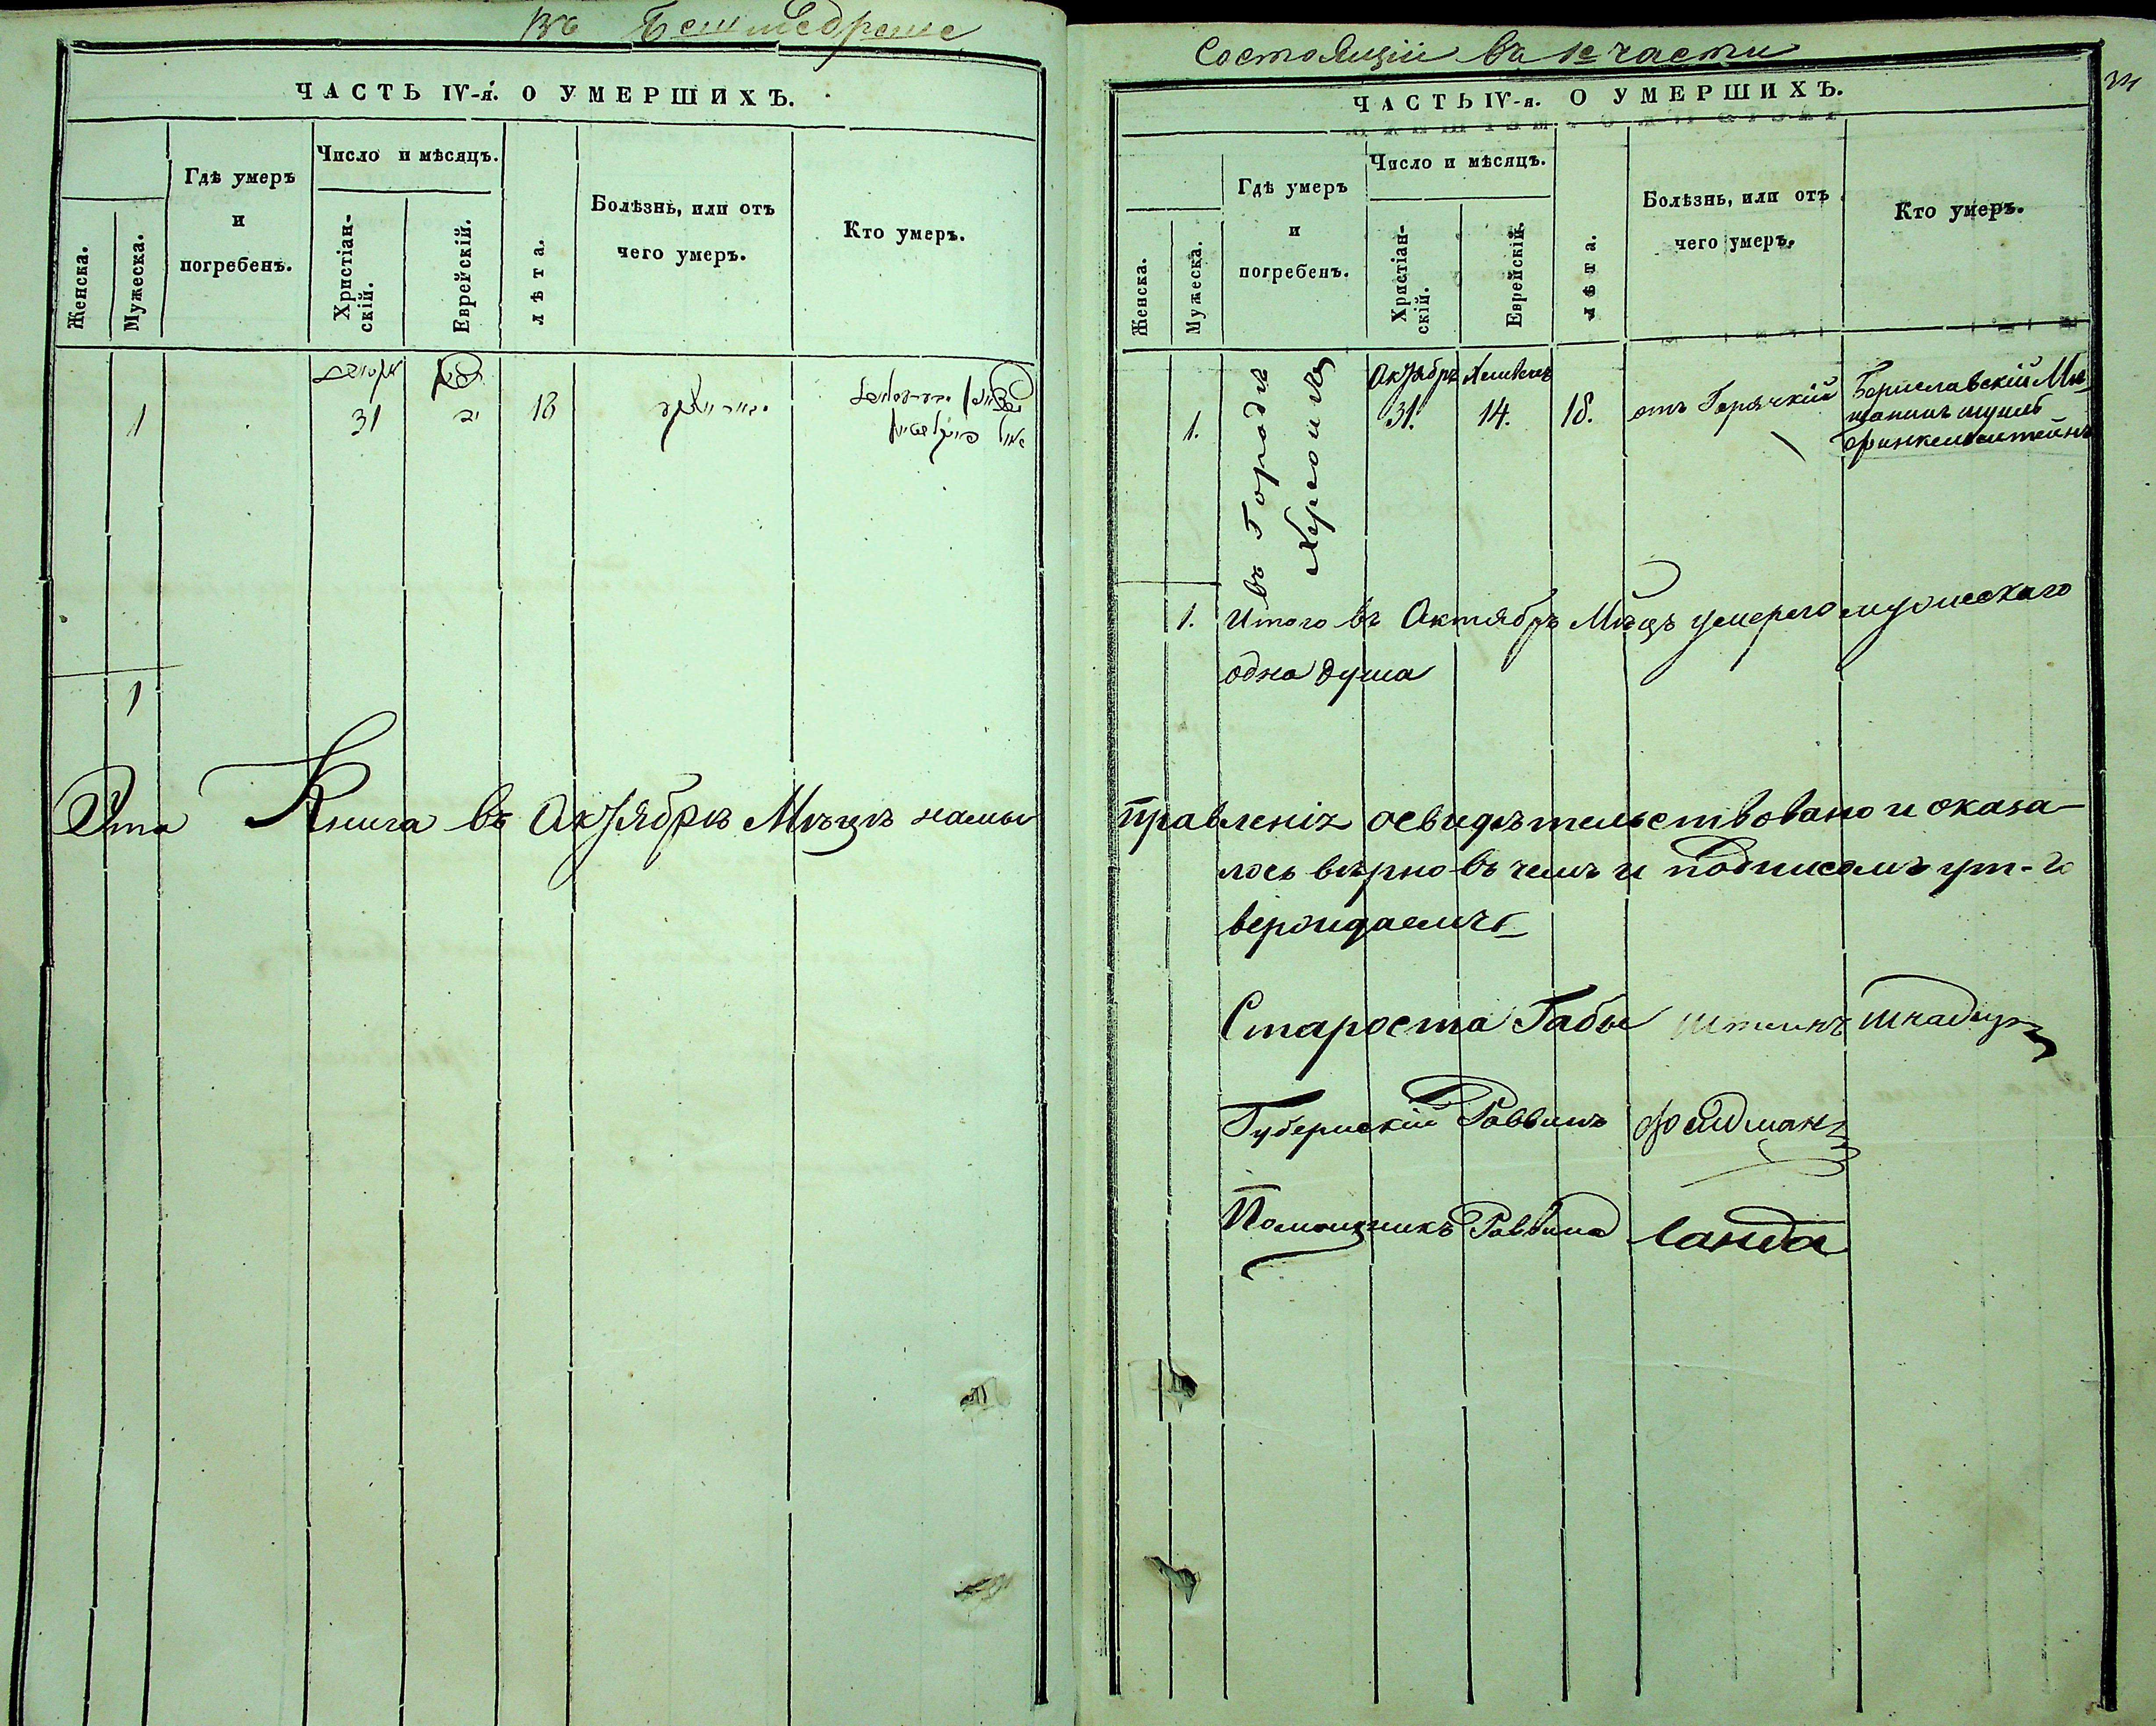 въ Бешмедреше
ЧАСТЬ IV-я. О УМЕРШИХЪ.
Женска.
Мужеска.
Гдѣ умеръ
и
погребенъ.
Число и мѣсяцъ.
Христіан-
скій.
Еврейскій.
лѣта.
Болѣзнь, или отъ
чего умеръ.
Кто умеръ.
1
31
18
1
Эта Книга въ Октябрѣ Мѣцѣ нами
Состоящій въ 1й части
ЧАСТЬ IV-я. О УМЕРШИХЪ.
Женска.
Мужеска.
Гдѣ умеръ
и
погребенъ.
Число и мѣсяцъ.
Христіан-
скій.
Еврейскій.
лѣта.
Болѣзнь, или отъ
чего умеръ.
Кто умеръ.
въ Городѣ
Херсонѣ
Октябрь
31.
14.
18.
1.
отъ Горячкій
Бериславскій Мѣ-
щанинъ
Финкельштейнъ
1. Итого въ Октябрѣ Мѣцѣ умерего мужескаго
одна душа
правленіи освидѣтельствовано и оказа-
лось вѣрно въ чемъ и подписомъ ут-
верждаемъ
Староста Габы
Губернскій Раввинъ Фелдманъ
Помощникъ Раввина Ланда